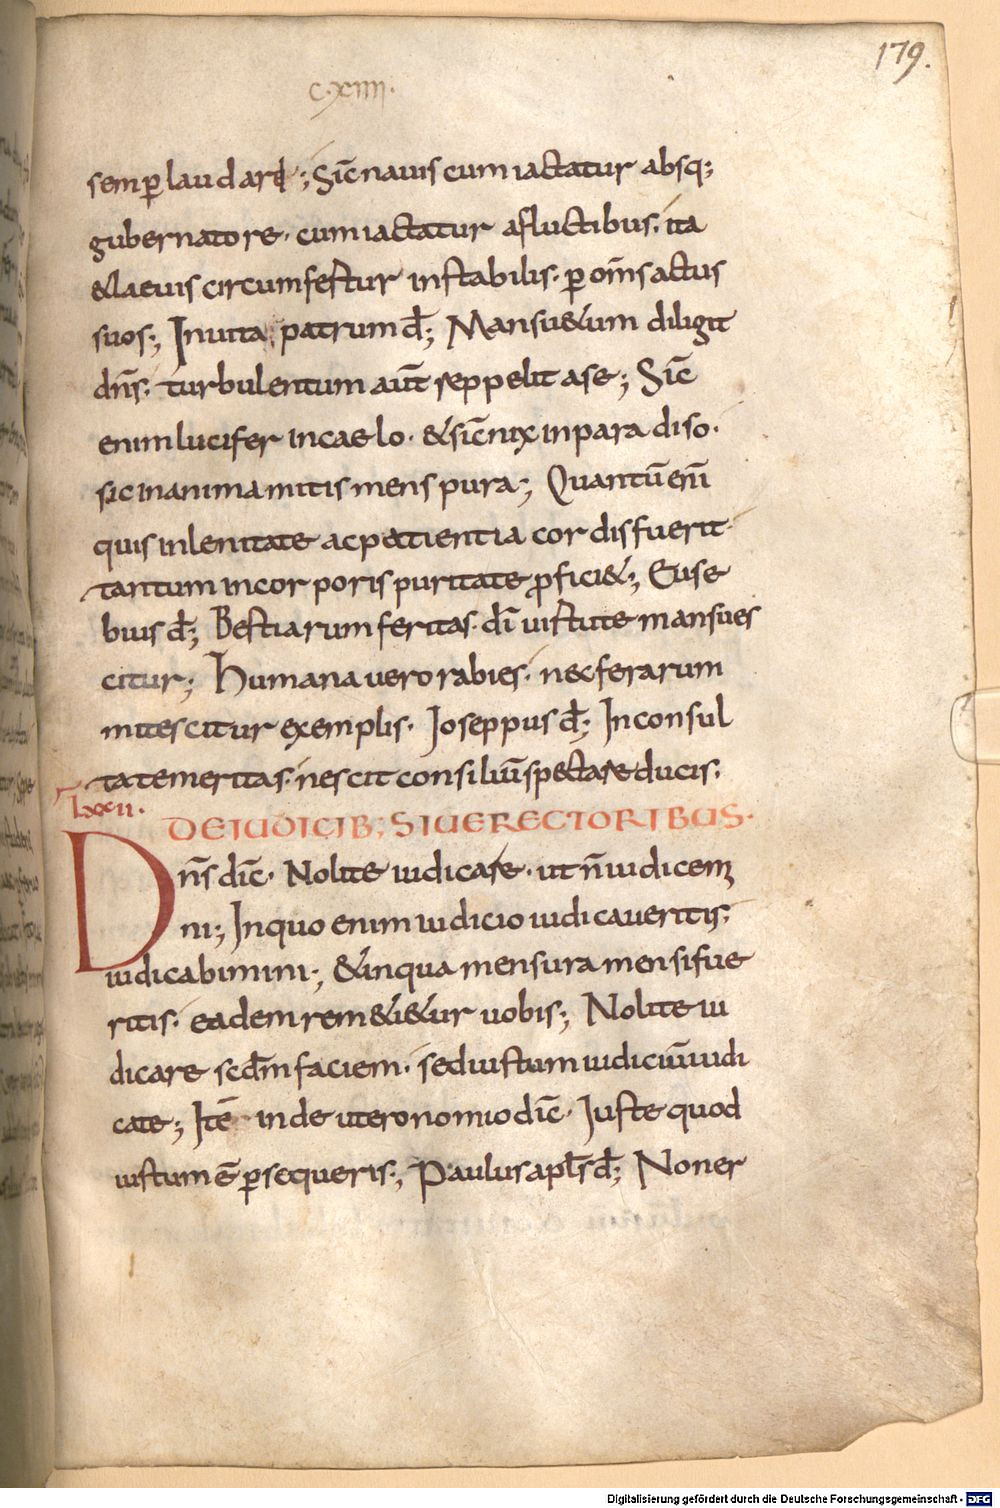 179.
c.xiiii.
semꝑ laudari; Sic̄ nauis cum iactatur absq;
gubernatore. cum iactatur a fluctibus. ita
& laeuis circumfertur instabilis. ꝑ om̄s actus
suos; In uita patrum d̄; Mansu&um diligit
dn̄s. turbulentum aut̄ reppelit a se; Sic̄
enim lucifer in caelo. & sic̄ nix in paradiso.
sic in anima mitis mens pura; Quantū eni̅
quis in lenitate ac patientia cordis fuerit.
tantum in corporis puritate ꝓfici&; Euse
bius d̄; Bestiarum feritas. dī uirtute mansues
citur; Humana uero rabies. nec ferarum
mitescitur exemplis. Joseppus d̄; Inconsul
ta temeritas. nescit consiliū spectare ducis.
lxxii.
DE IUDICIB; SIUE RECTORIBUS.
Dn̄s dic̄. Nolite iudicare. ut n̄ iudicem
ni; In quo enim iudicio iudicaueritis;
iudicabimini; & in qua mensura mensi fue
ritis. eadem rem&i&ur uobis; Nolite iu
dicare scd̄m faciem. sed iustum iudiciū iudi
cate; Itē in deuteronomio dic̄. Iuste quod
iustum ē ꝑsequeris; Paulus apl̄s d̄; Non er
Digitalisierung gefördert durch die Deutsche Forschungsgemeinschaft - DFG